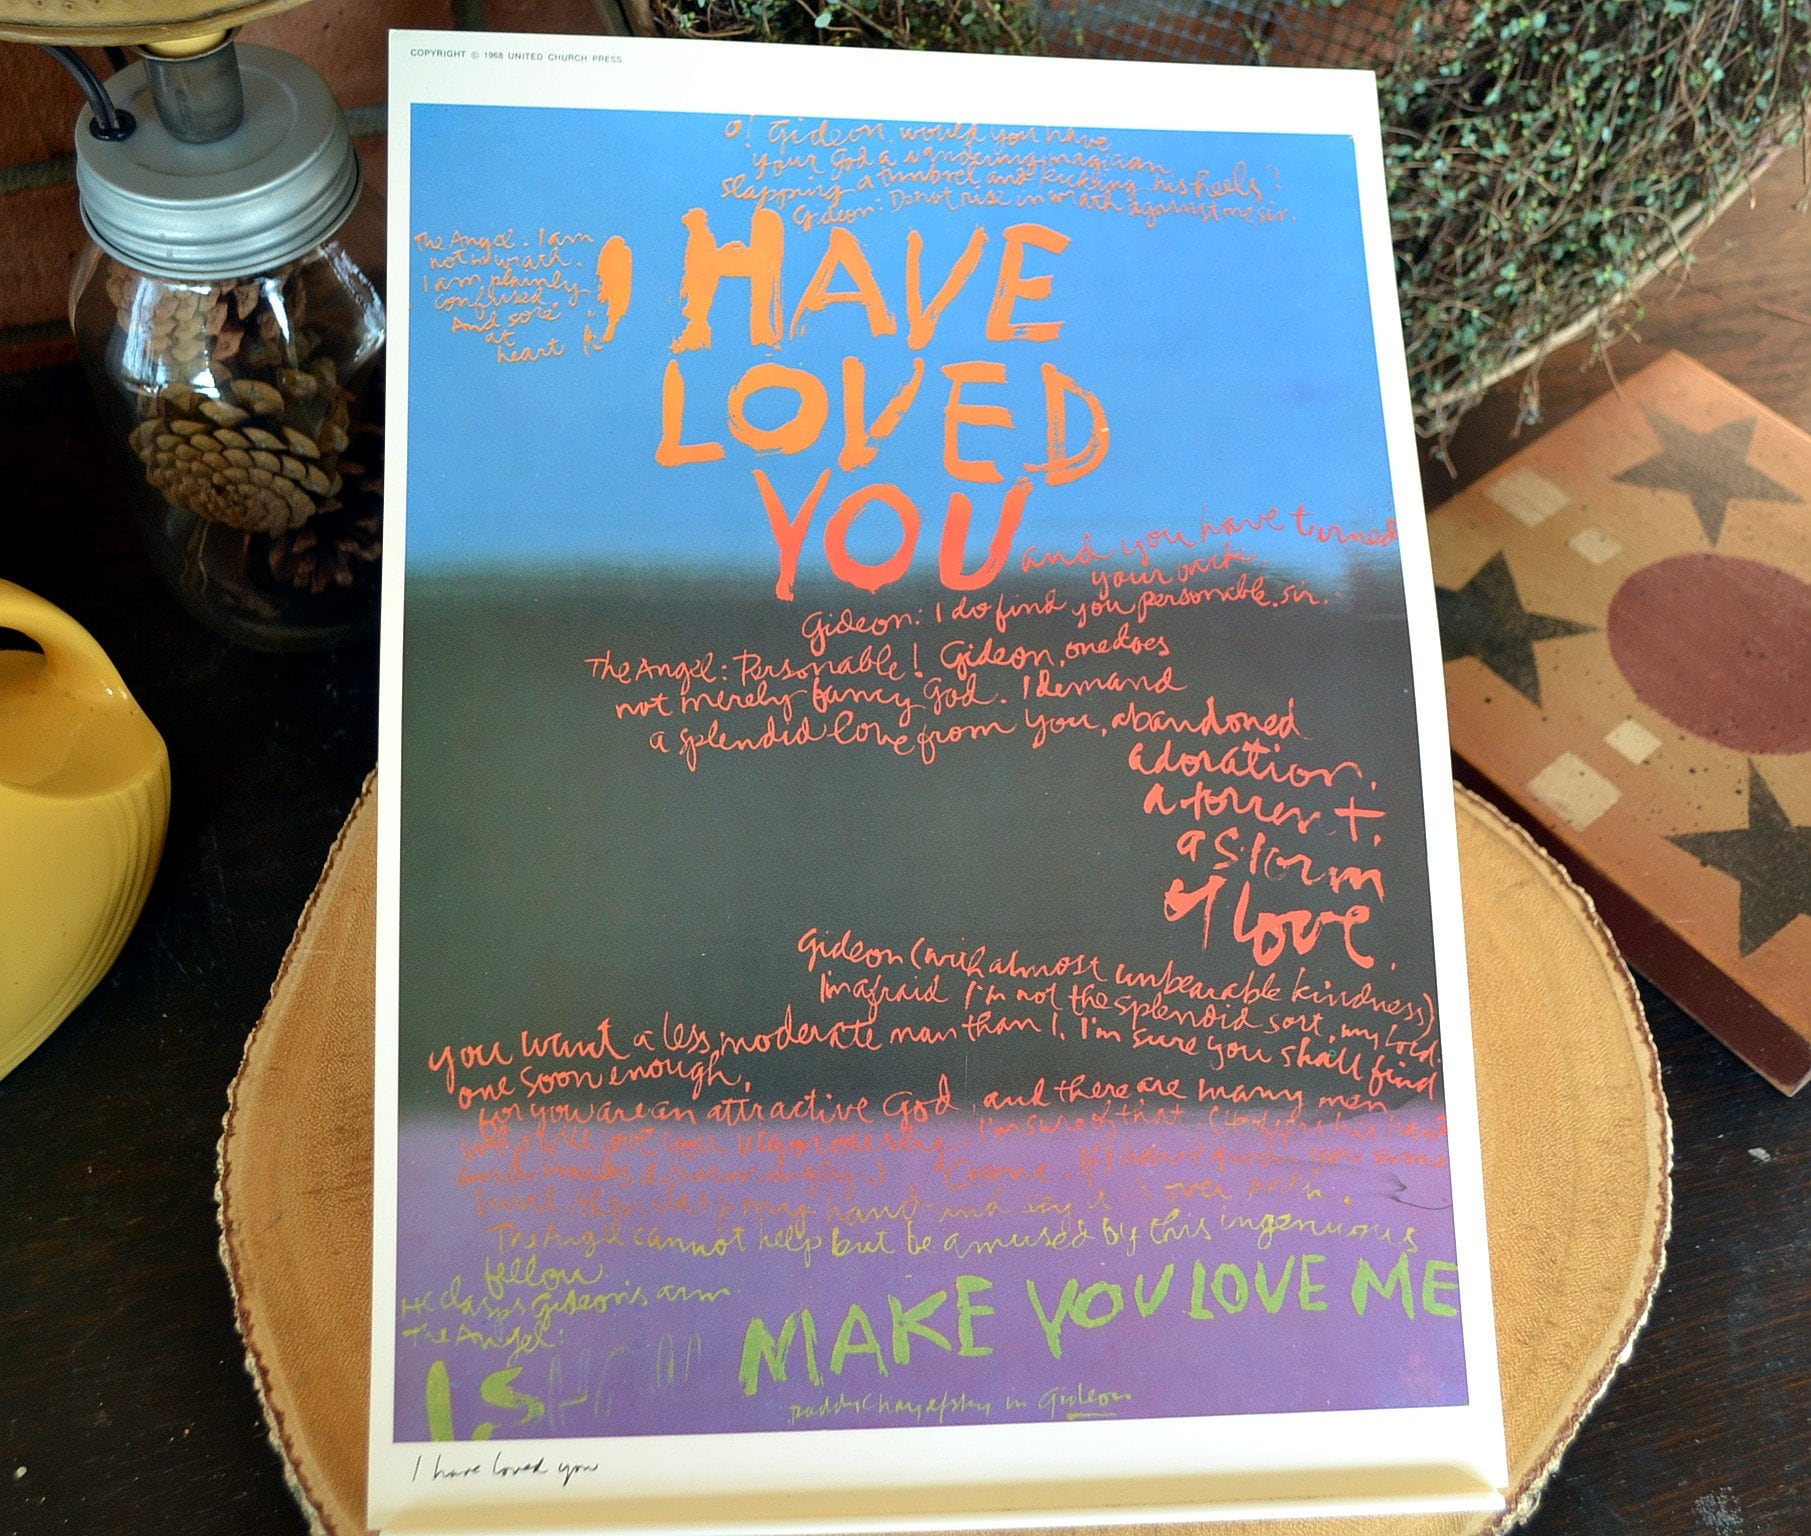 COPYRIGHT © 1968 UNITED CHURCH PRESS
O! Gideon, would you have
your God a wandering magician
slapping a timbrel and kicking his heels?
Gideon: Do not rise in wrath against me sir.
The Angel. I am
not in wrath.
I am plainly
confused.
And sore
at
heart
I HAVE
LOVED
YOU
and you have turned
your back.
Gideon: I do find you personable, sir.
The Angel: Personable! Gideon, one does
not merely fancy God. I demand
a splendid love from you, abandoned
adoration,
a torrent,
a storm
of love.
Gideon (with almost unbearable kindness)
I'm afraid I'm not the splendid sort, my Lord.
you want a less moderate man than I, I'm sure you shall find
one soon enough,
for you are an attractive God, and there are many men
who will love you vigorously, I'm sure of that. (He offers his hand
and smiles disarmingly.) Come, if I have given you some
hurt, then clasp my hand and say it is over with.
The Angel cannot help but be amused by this ingenuous
fellow
He clasps Gideon's arm.
The Angel:
I SHALL MAKE YOU LOVE ME
paddy Chayefsky in Gideon
I have loved you